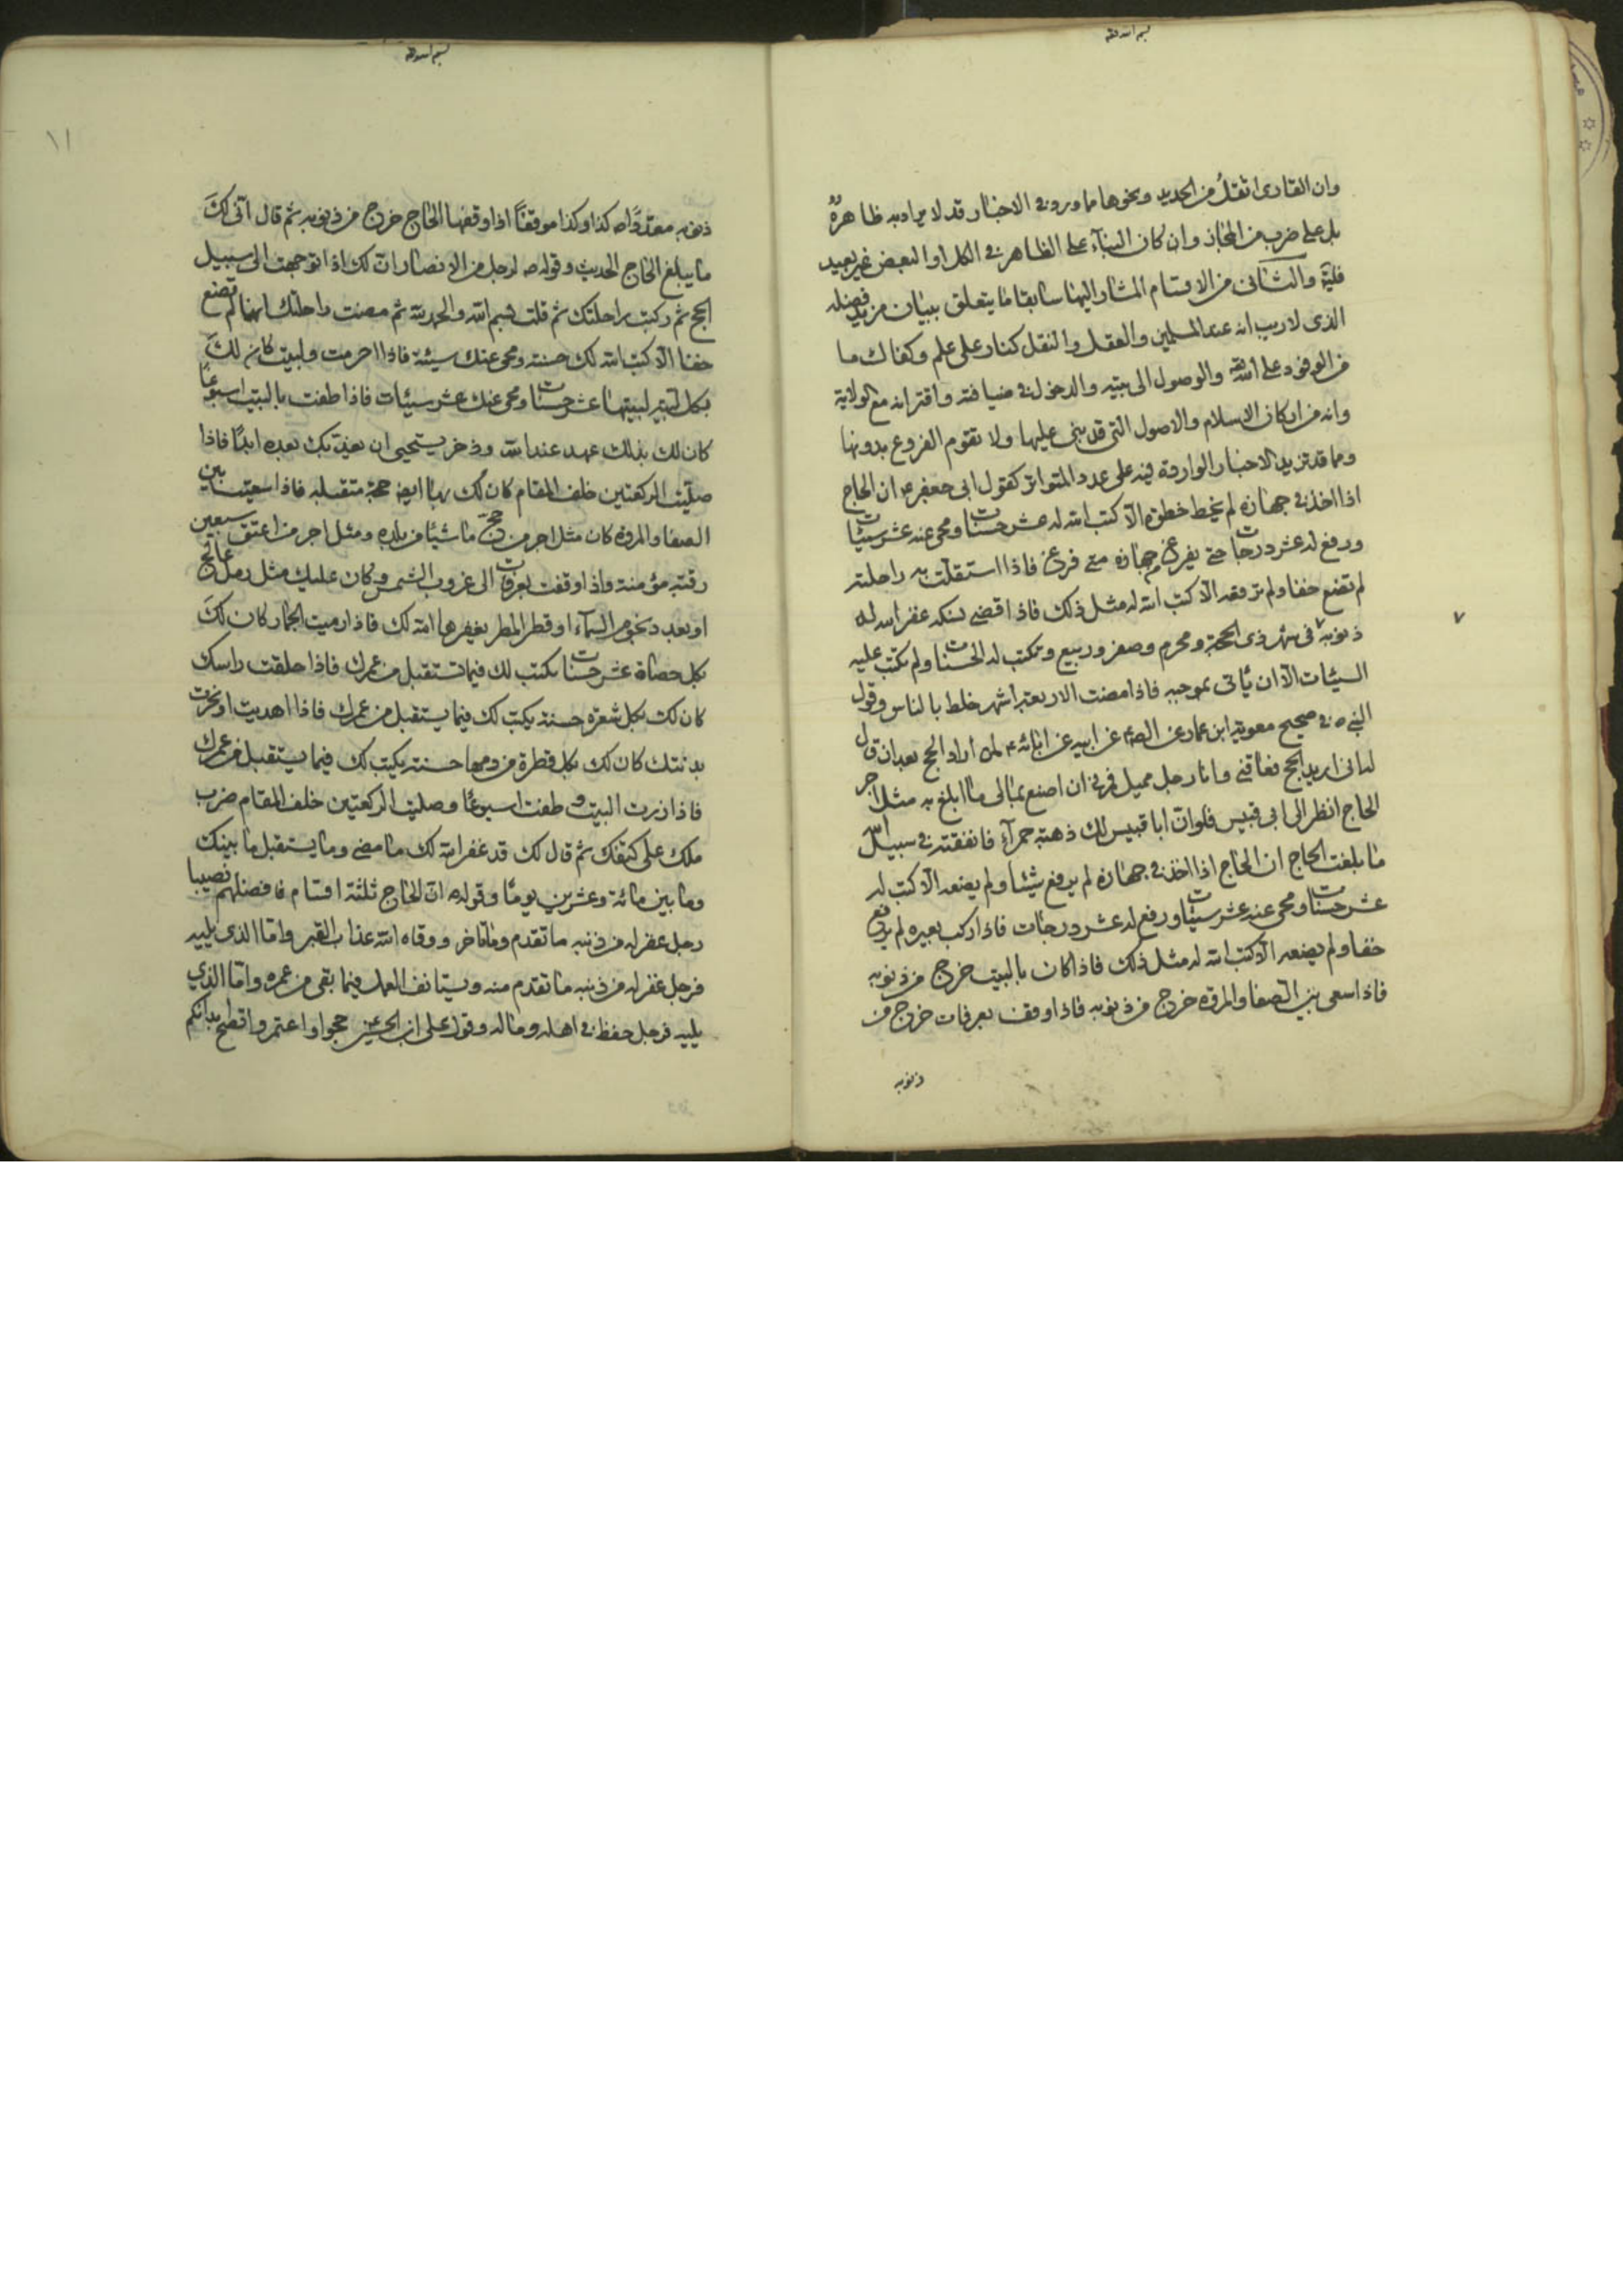 بسم الله ثقة
وان القاری اثقل من الحديد ونحوها مما ورد فی الاخبار قد لا یراد به ظاهره
بل علی ضرب من المجاز وان کان البنآء علی الظاهر فی الکل او البعض غیر بعید
فلیة والثانی من الاقسام المشار الیها سابقا ما یتعلق ببیان مزید فضله
الذی لا ریب انه عند المسلمین والعقل والنقل کنار علی علم وکفاك ما
من الوفود علی الله تع والوصول الی بیته والدخول فی ضیافته واقترانه مع الولایة
وانه من ارکان الاسلام والاصول التی قد بنی علیها ولا تقوم الفروع بدونها
ومما قد تزید الاخبار الواردة فیه علی عدد المتواتر کقول ابی جعفر ع ان الحاج
اذا اخذ فی جهازه لم یخط خطوة الّا کتب الله له عشر حسنات ومحی عنه عشر سیئات
ورفع له عشر درجات حتی یفرغ من جهازه متی فرغ فاذا استقلّت به راحلته
لم تضع خفا ولم ترفعه الّا کتب الله له مثل ذلك فاذا قضی نسکه غفر الله له
ذنوبه فی شهر ذی الحجة ومحرم وصفر وربیع وتکتب له الحسنات ولم یکتب علیه
السیئات الّا ان یأتی بموجبه فاذا مضت الاربعة اشهر خلط بالناس وقول
النبی ص فی صحیح معویة ابن عمار عن الص ع عن ابیه عن ابائه ع لمن اراد الحج بعد ان قال
له انی ارید الحج فعاقنی وانا رجل ممیل فمرنی ان اصنع بمالی ما ابلغ به مثل اجر
الحاج انظر الی ابی قبیس فلو انّ ابا قبیس لك ذهبة حمرآء فانفقته فی سبیل الله
ما بلغت الحاج ان الحاج اذا اخذ فی جهازه لم یرفع شیئا ولم یضعه الّا کتب له
عشر حسنات ومحی عنه عشر سیئات ورفع له عشر درجات فاذا رکب بعیره لم یرفع
خفا ولم یضعه الّا کتب الله له مثل ذلك فاذا کان بالبیت خرج من ذنوبه
فاذا سعی بین الصفا والمروة خرج من ذنوبه فاذا وقف بعرفات خرج من
ذنوبه
۷
بسم الله ثقة
۱۱
ذنوبه معدّدًا ص کذا وکذا موقفًا اذا وقفها الحاج خرج من ذنوبه ثم قال انّی لكَ
ما یبلغ الحاج الحدیث وقوله ص لرجل من الانصار انّ لك اذا توجهت الی سبیل
الحج ثم رکبت راحلتك ثم قلت بسم الله والحمد لله ثم مضت راحلتك انها لم تضع
خفا الّا کتب الله لك حسنة ومحی عنك سیئة فاذا احرمت ولبیت کان لكَ
بکل تلبیة لبیتها عشر حسنات ومحی عنك عشر سیئات فاذا طفت بالبیت اسبوعًا
کان لك بذلك عهد عند الله وذخر یستحیی ان یعذبك بعده ابدًا فاذا
صلّیت الرکعتین خلف المقام کان لك بها ایض حجة متقبله فاذا سعیت بین
الصفا والمروة کان مثل اجر من حجّ ماشیًا من بلده ومثل اجر من اعتق سبعین
رقبة مؤمنة واذا وقفت بعرفات الی غروب الشمس وکان علیك مثل رمل عالج
او بعدد نجوم السمآء او قطر المطر یغفرها الله لك فاذا رمیت الجمار کان لكَ
بکل حصاة عشر حسنات یکتب لك فیما تستقبل من عمرك فاذا حلقت راسك
کان لك بکل شعرة حسنة یکتب لك فیما یستقبل من عمرك فاذا اهدیت او نحرت
بدنتك کان لك بکل قطرة من دمها حسنة یکتب لك فیما یستقبل من عمرك
فاذا زرت البیت وطفت اسبوعًا وصلیت الرکعتین خلف المقام ضرب
ملك علی کتفك ثم قال لك قد غفر الله لك ما مضی وما یستقبل ما بینك
وما بین مائة وعشرین یومًا وقوله ص انّ الحاج ثلثة اقسام فافضلهم نصیبا
رجل غفر له من ذنبه ما تقدم وما تاخر ووقاه الله عذاب القبر وامّا الذی یلیه
فرجل غفر له من ذنبه ما تقدم منه ویستانف العمل فیما بقی من عمره وامّا الذی
یلیه فرجل حفظ فی اهله وماله وقول علی ابن الحسین ع حجوا واعتمروا تصح ابدانکم